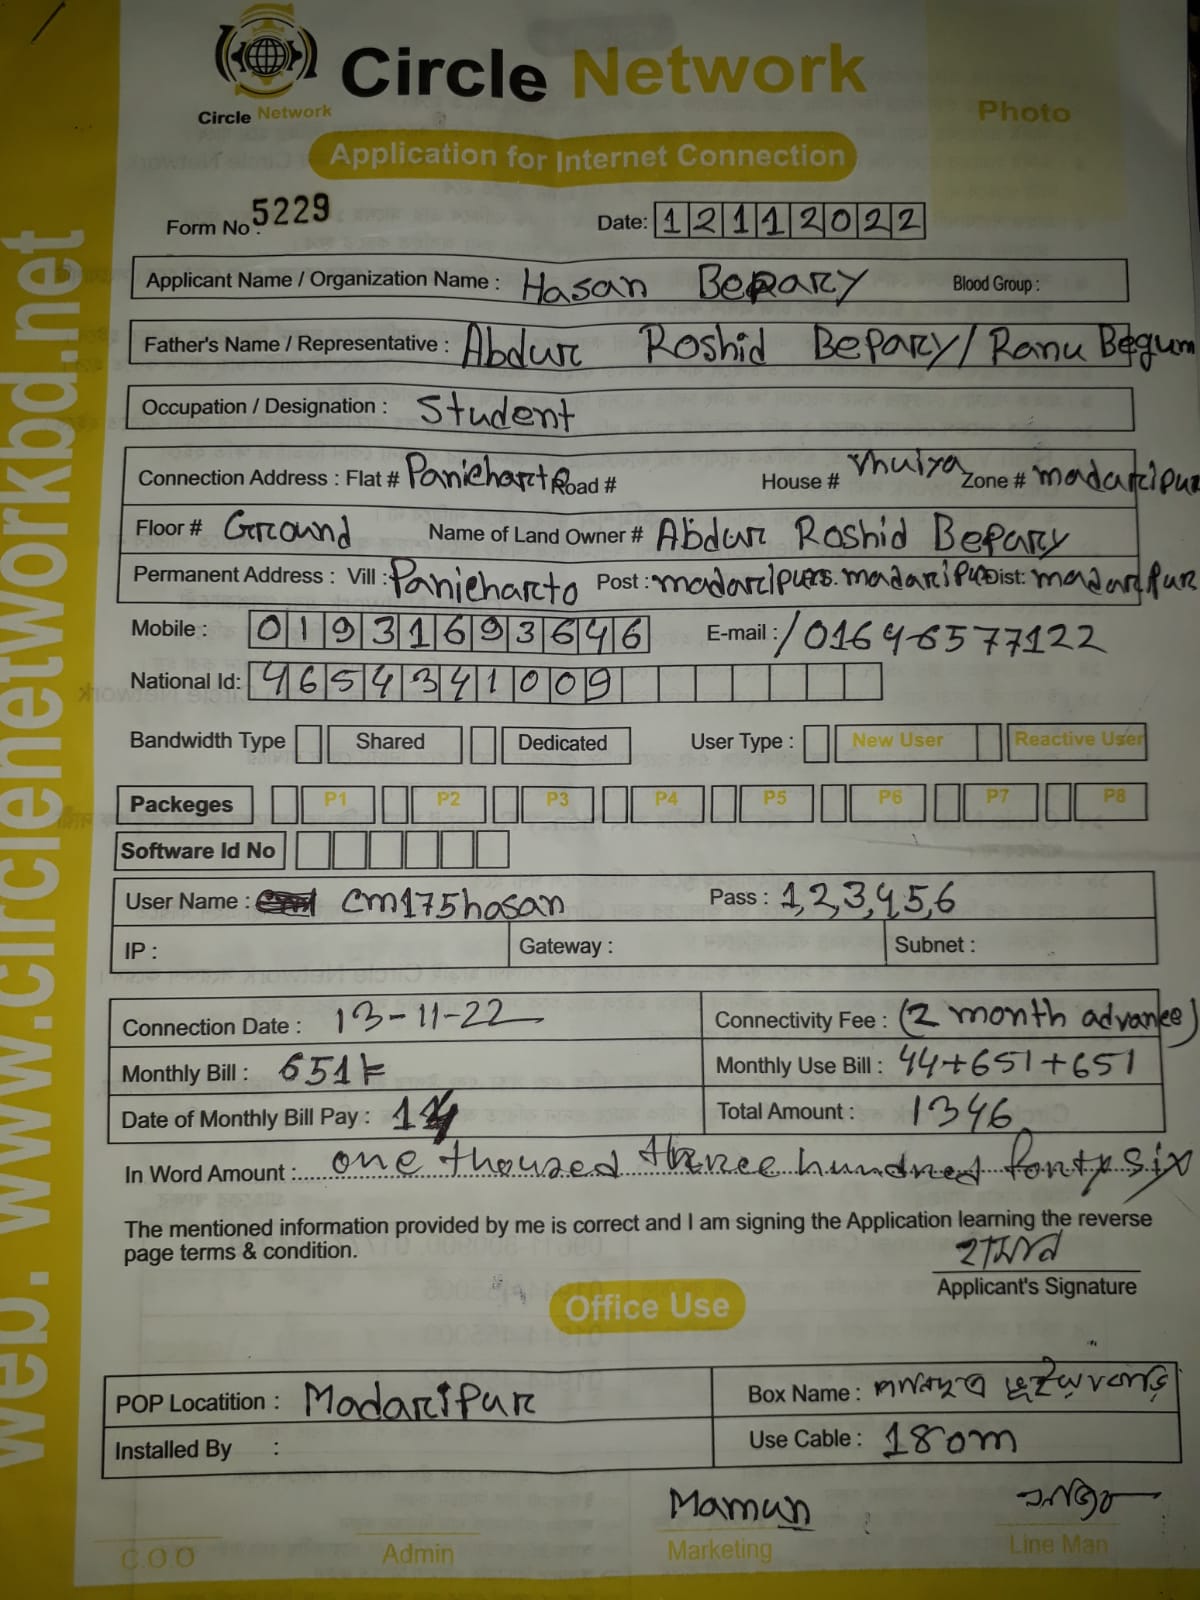 Circle Network
Circle Network
Photo
Application for Internet Connection
Form No. 5229 Date: 12112022
Applicant Name / Organization Name : Hasan Bepary Blood Group :
Father's Name / Representative : Abdur Roshid Bepary/ Ranu Begum
Occupation / Designation : Student
Connection Address : Flat # Panicharto Road # House # Zone # madaripur
Floor # Ground Name of Land Owner # Abdur Roshid Bepary
Permanent Address : Vill : Panicharto Post : madaripur P.S. madaripur Dist: madaripur
Mobile : 01931693646 E-mail : / 01646577122
National Id: 4654341009
Bandwidth Type Shared Dedicated User Type : New User Reactive User
Packeges P1 P2 P3 P4 P5 P6 P7 P8
Software Id No
User Name : cm175hasan Pass : 1,2,3,4,5,6
IP : Gateway : Subnet :
Connection Date : 13-11-22 Connectivity Fee : (2 month advance)
Monthly Bill : 651 Monthly Use Bill : 44+651+651
Date of Monthly Bill Pay : Total Amount : 1346
In Word Amount : one thoused three hundred forty six
The mentioned information provided by me is correct and I am signing the Application learning the reverse
page terms & condition.
হাসান
Applicant's Signature
Office Use
POP Locatition : Madaripur Box Name :
Installed By : Use Cable : 180m
Mamun
C.O.O Admin Marketing Line Man
web. www.circlenetworkbd.net